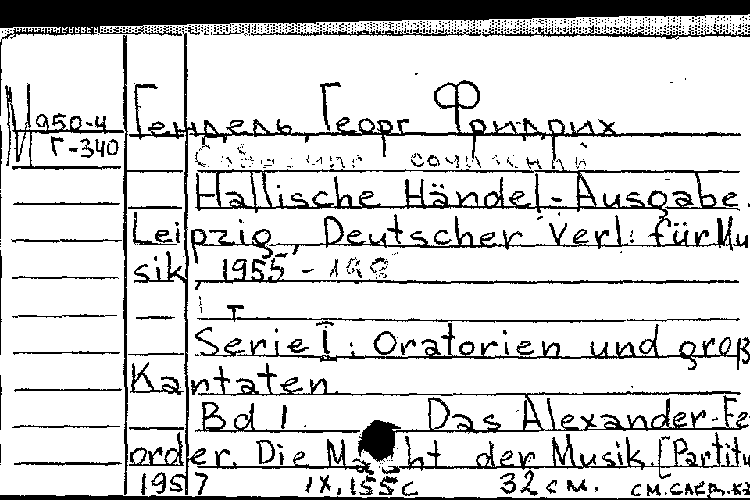 М 950-4
Г-340
Гендель, Георг Фридрих
Собрание сочинений
Hallische Händel-Ausgabe.
Leipzig, Deutscher Verl. für Mu
sik, 1955 - 198
Serie I: Oratorien und groß
Kantaten
Bd 1 Das Alexander-Fe
order. Die M ht der Musik. [Partitu
1957 IX, 155 с 32 см. см. след. к